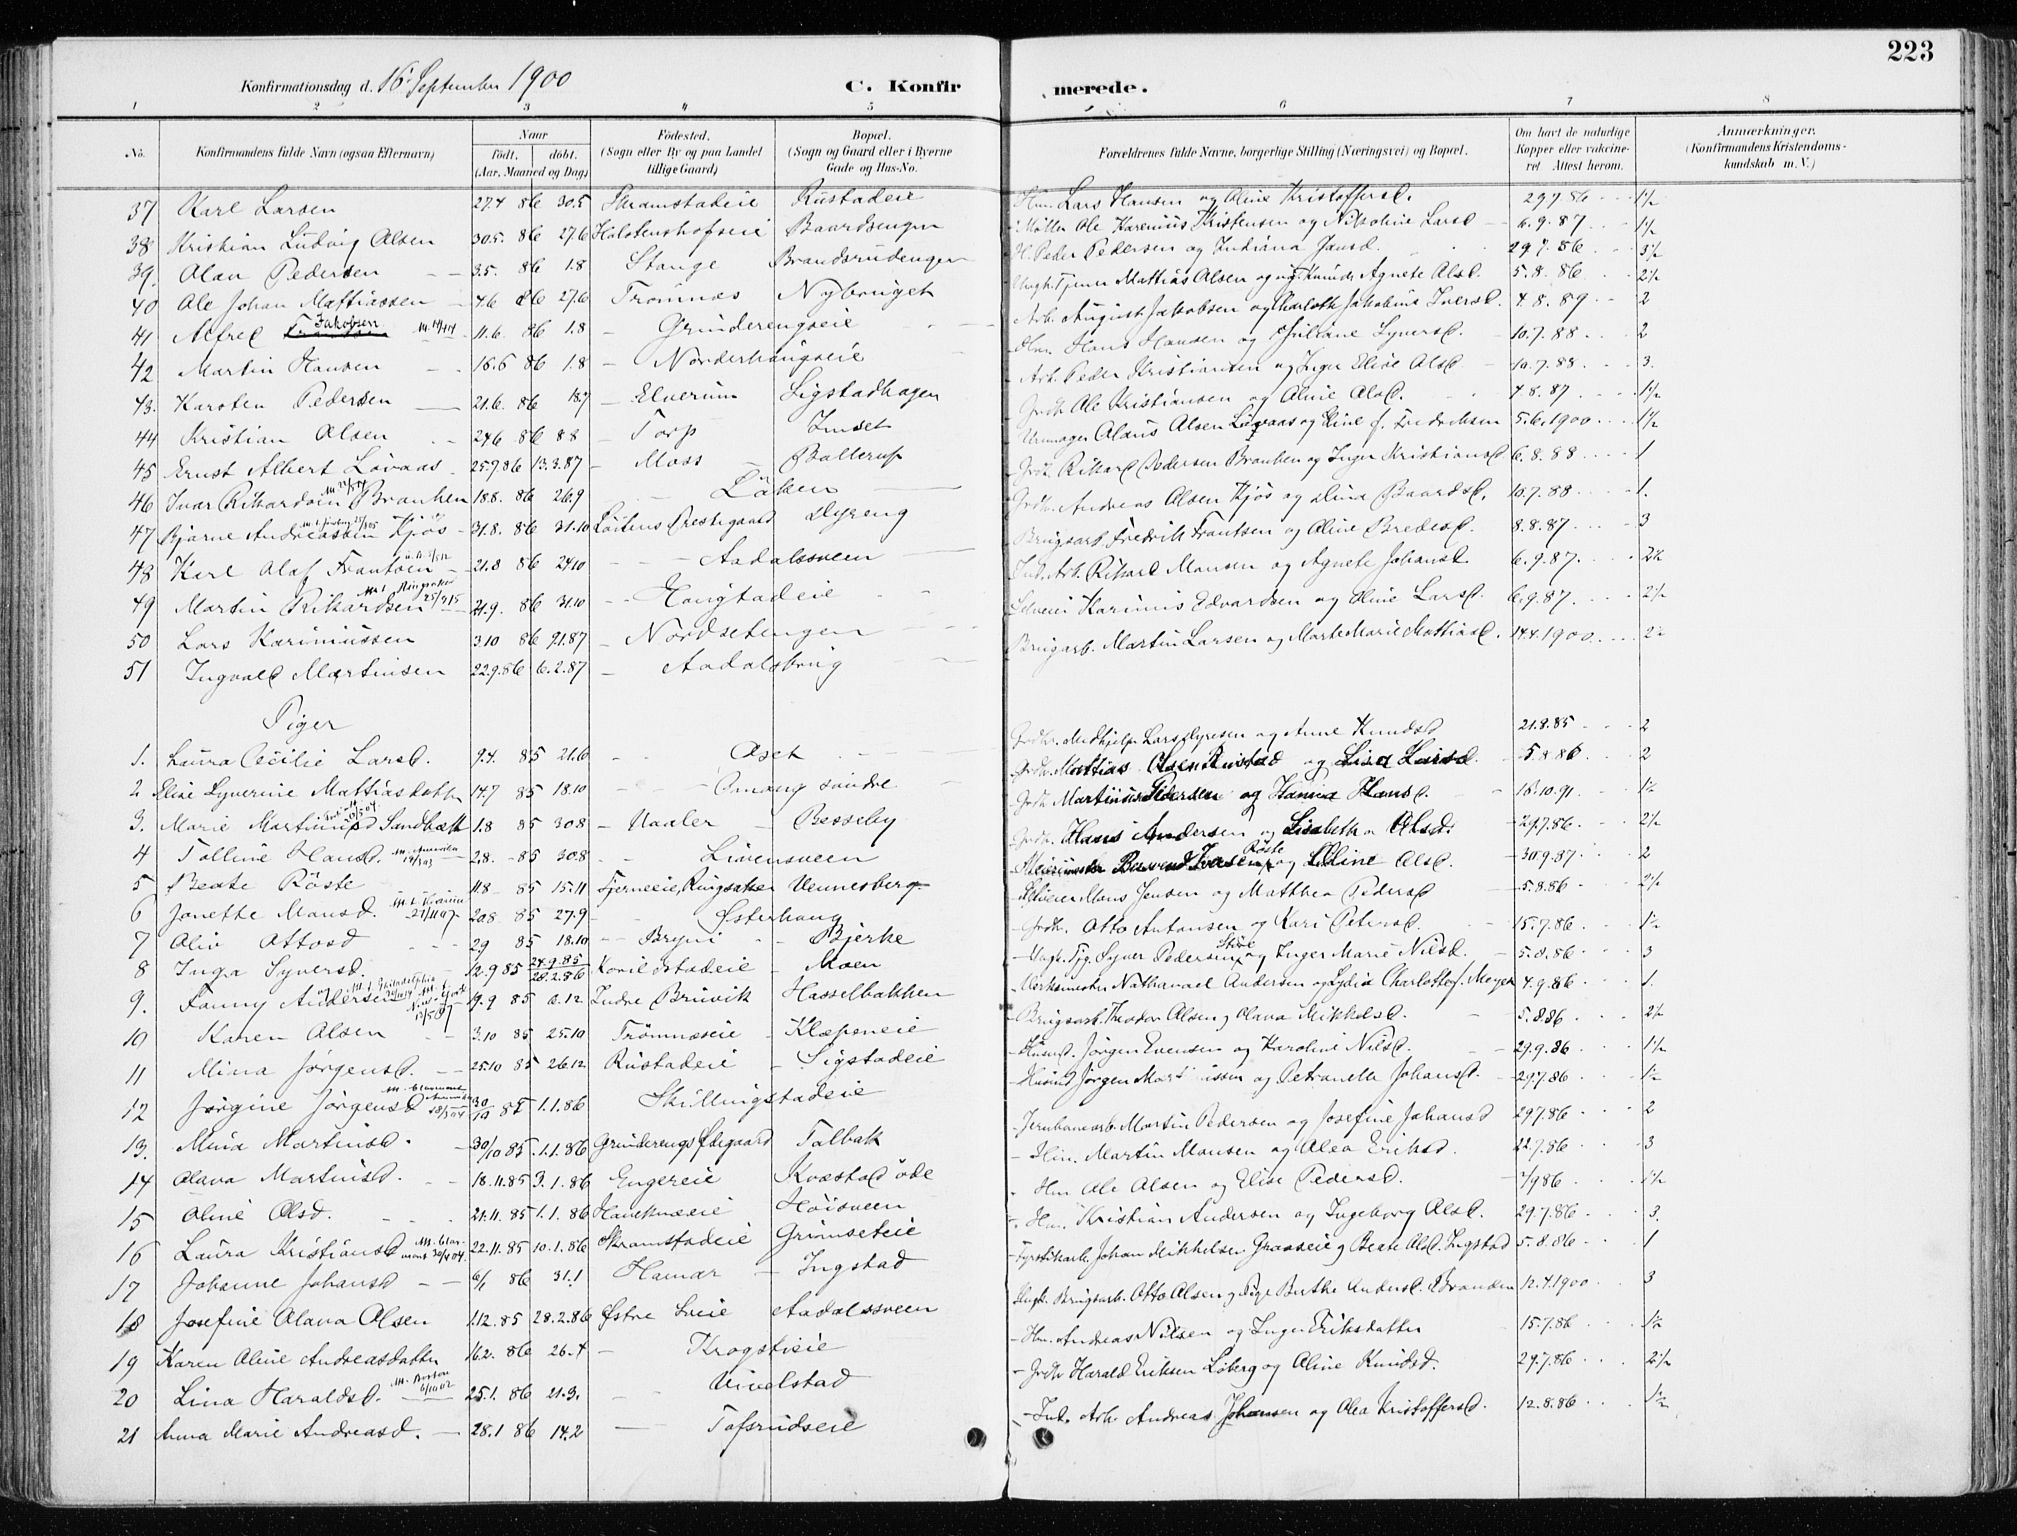 223
Konfirmationsdag d. 16 September 1900 C. Konfir merede.
1 2 3 4 5 6 7 8
No. Konfirmandens fulde Navn (ogsaa Efternavn) Naar født. døbt. (Aar, Maaned og Dag) Fødested. (Sogn eller By og paa Landet tillige Gaard) Bopæl. (Sogn og Gaard eller i Byerne Gade og Hus-No. Forældrenes fulde Navne, borgerlige Stilling (Næringsvei) og Bopæl. Om havt de naturlige Kopper eller vakcineret Attest herom. Anmærkninger. (Konfirmandens Kristendomskundskab m. V.)
37 Karl Larsen 27.4 86 30.5 Skramstadeie Rustadeie Hm. Lars Hansen og Oline Kristoffersd. 29.7 86 1½
38 Kristian Ludvig Olsen 30.5. 86 27.6 Halstenshofseie Baardsengen Møller Ole Karenius Kristensen og Nikoline Larsd 6.9.87 1½
39. Olan Pedersen 3.5. 86 1.8 Stange Brandsrudengen H. Peder Pedersen og Indiana Jansd. 29.7.86 3½
40 Ole Johan Mathiassen 4.6 86 27.6 Trømnæs Nybruget Ungk. Tjener Mathias Olsen og Agnete Olsd. 5.8.86 2½
41 Alfred Jakobsen 11.6. 86 1.8 Grinderengseie Arb. August Jakobsen og Charlotte Jakobine Iversd. 4.8.89 2
42 Martin Hansen 16.6 86 1.8 Norderhaugseie Hm. Hans Hansen og Juliane Syversd. 10.7.88 2
43. Karsten Pedersen 21.6. 86 18.7 Elverum Sigstadhagen Arb. Peder Kristiansen og Inger Elise Olsd 10.7.88 3.
44 Kristian Olsen 24.6 86 8.8 Torp Imset Grdb. Ole Kristiansen og Oline Olsd. 4.8.87 1½
45 Ernst Albert Løvaas 25.9.86 13.3.87 Moss Balterup Urmager Olaus Olsen Løvaas og Eline f. Fredriksen 5.6.1900 1½
46 Ivar Rikardsen Brauhen 18.8. 86 26.9 Løken Grdb. Rikard Pedersen Brauhen og Inger Kristiansd 6.8.88 1
47 Bjarne Andreassen Kjos 31.8. 86 31.10 Løitens Prestegaard Dyreng Grdb. Andreas Olsen Kjos og Dina Baardsd. 10.7.88 1.
48 Karl Olaf Frantsen 21.8 86 24.10 Aadalsveen Brugsarb. Fredrik Frantsen og Oline Bredesd. 8.8.87 3
49 Martin Rikardsen 21.9. 86 31.10 Hougstadeie Ind. Arb. Rikard Monsen og Agnete Johansd. 6.9.87. 2½
50 Lars Karinussen 3.10 86 9.1.87 Nordsetengen Selveier Karinus Edvardsen og Oline Larsd. 6.9.87. 2½
51 Ingvald Martinsen 22.9.86 6.2.87 Aadalsbrug Brugsarb. Martin Larsen og Marte Marie Mathiasd. 14.4.1900 2½
Piger
1. Laura Cecilie Larsd. 9.4. 85 21.6 Aset Grdbr. Medhjelp. Lars Syvesen og Anne Knudsd 21.8.85 2
2 Eline Syverine Mathiasdatter 14.7 85 18.10 Omang søndre Grdb. Mathias Olsen Rustad og Lisa Larsd. 5.8.86 2
3. Marie Martinusd Sandbæk 1.8 85 30.8 Vaaler Besseby Grdb. Martinus Pedersen og Hanna Hansd. 18.10.91 1½
4 Talline Hansd. 2.8. 85 30.8 Livensveen Grdb. Hans Andersen og Lisabeth Olsd. 29.7.86 2½
5 Beate Røste 11.8 85 15.11 Tjerneeie, Ringsaker Vennesberg Iversen Røste og Oline Olsd. 30.9.87 2
6 Janette Monsd. 20.8 85 27.9 Østerhaug Selveier Mons Jensen og Matthea Pedersd 5.8.86 2½
7 Oliv Ottosd 2.9 85 18.10 Bryni Bjerke Grdb. Otto Antonsen og Kari Petersd. 15.7.86 1½
8 Inga Syversd. 12.9 85 24.9.85 28.2.86 Konildstadeie Moen Ungk. Tjg. Syver Pedersen og Inger Marie Nilsd. 5.8.86 3
9. Fanny Andersen 19.9 85 6.12 Indre Bruvik Hasselbakken Verksmester Nathanael Andersen og Lydia Charlotte f. Meyer 4.9.86 1.
10 Karen Olsen 3.10 85 25.10 Trømnæseie Klæpeneie Brugsarb. Theodor Olsen og Olava Mikkelsd. 5.8.86 2½
11 Mina Jørgensd. 25.10 85 26.12 Rustadeie Sigstadeie Husmd. Jørgen Evensen og Karoline Nilsd. 29.9.86 1½
12 Jørgine Jørgensd 30/10 85 1.1.86 Skillingstadeie Husmd Jørgen Martinussen og Petronelle Johansd. 29.7.86 1½
13. Mina Martinsd. 30/10 85. 1.1.86 Grinderengs Ødegaard Talbak Jernbanearb. Martin Pedersen og Josefine Johansd 29.7.86 2
14 Olava Martinsd. 18.11.85 3.1.86 Engereie Kvæstad øde Hm. Martin Monsen og Olea Eriksd. 22.7.86 3
15 Oline Olsd. 21.11.85 1.1.86 Haneknæeie Høisveen Hm Ole Olsen og Elise Pedersd. 7/9 86 1½
16 Laura Kristiansd 22.11.85 10.1.86 Skramstadeie Grimseteie Hm. Kristian Andersen og Ingeborg Olsd. 29.7.86 3.
17 Johanne Johansd 6/1 86 31.1 Hamar Ingstad Fyrstikarb. Johan Mikkelsen Graaseie og Beate Olsd. Ingstad 5.8.86 1
18 Josefine Olava Olsen 1.12.85 28.2.86 Østre Lveie Aadalsveen Ungk. Brugsarb. Otto Olsen og Pige Berthe Andersd. Branden 12.4.1900 3
19 Karen Oline Andreasdatter 16.2. 86 26.4 Krogstieie Hm. Andreas Nilsen og Inger Eriksdatter 15.7.86 1½
20 Lina Haraldsd. 25.1. 86 21.3. Vivelstad Grdb. Harald Eriksen Løberg og Oline Knudsd. 29.7.86 2½
21 Anna Marie Andreasd. 28.1 86 14.2 Tofsrudseie Ind. Arb. Andreas Johansen og Olea Kristoffersd. 12.8.86 1½